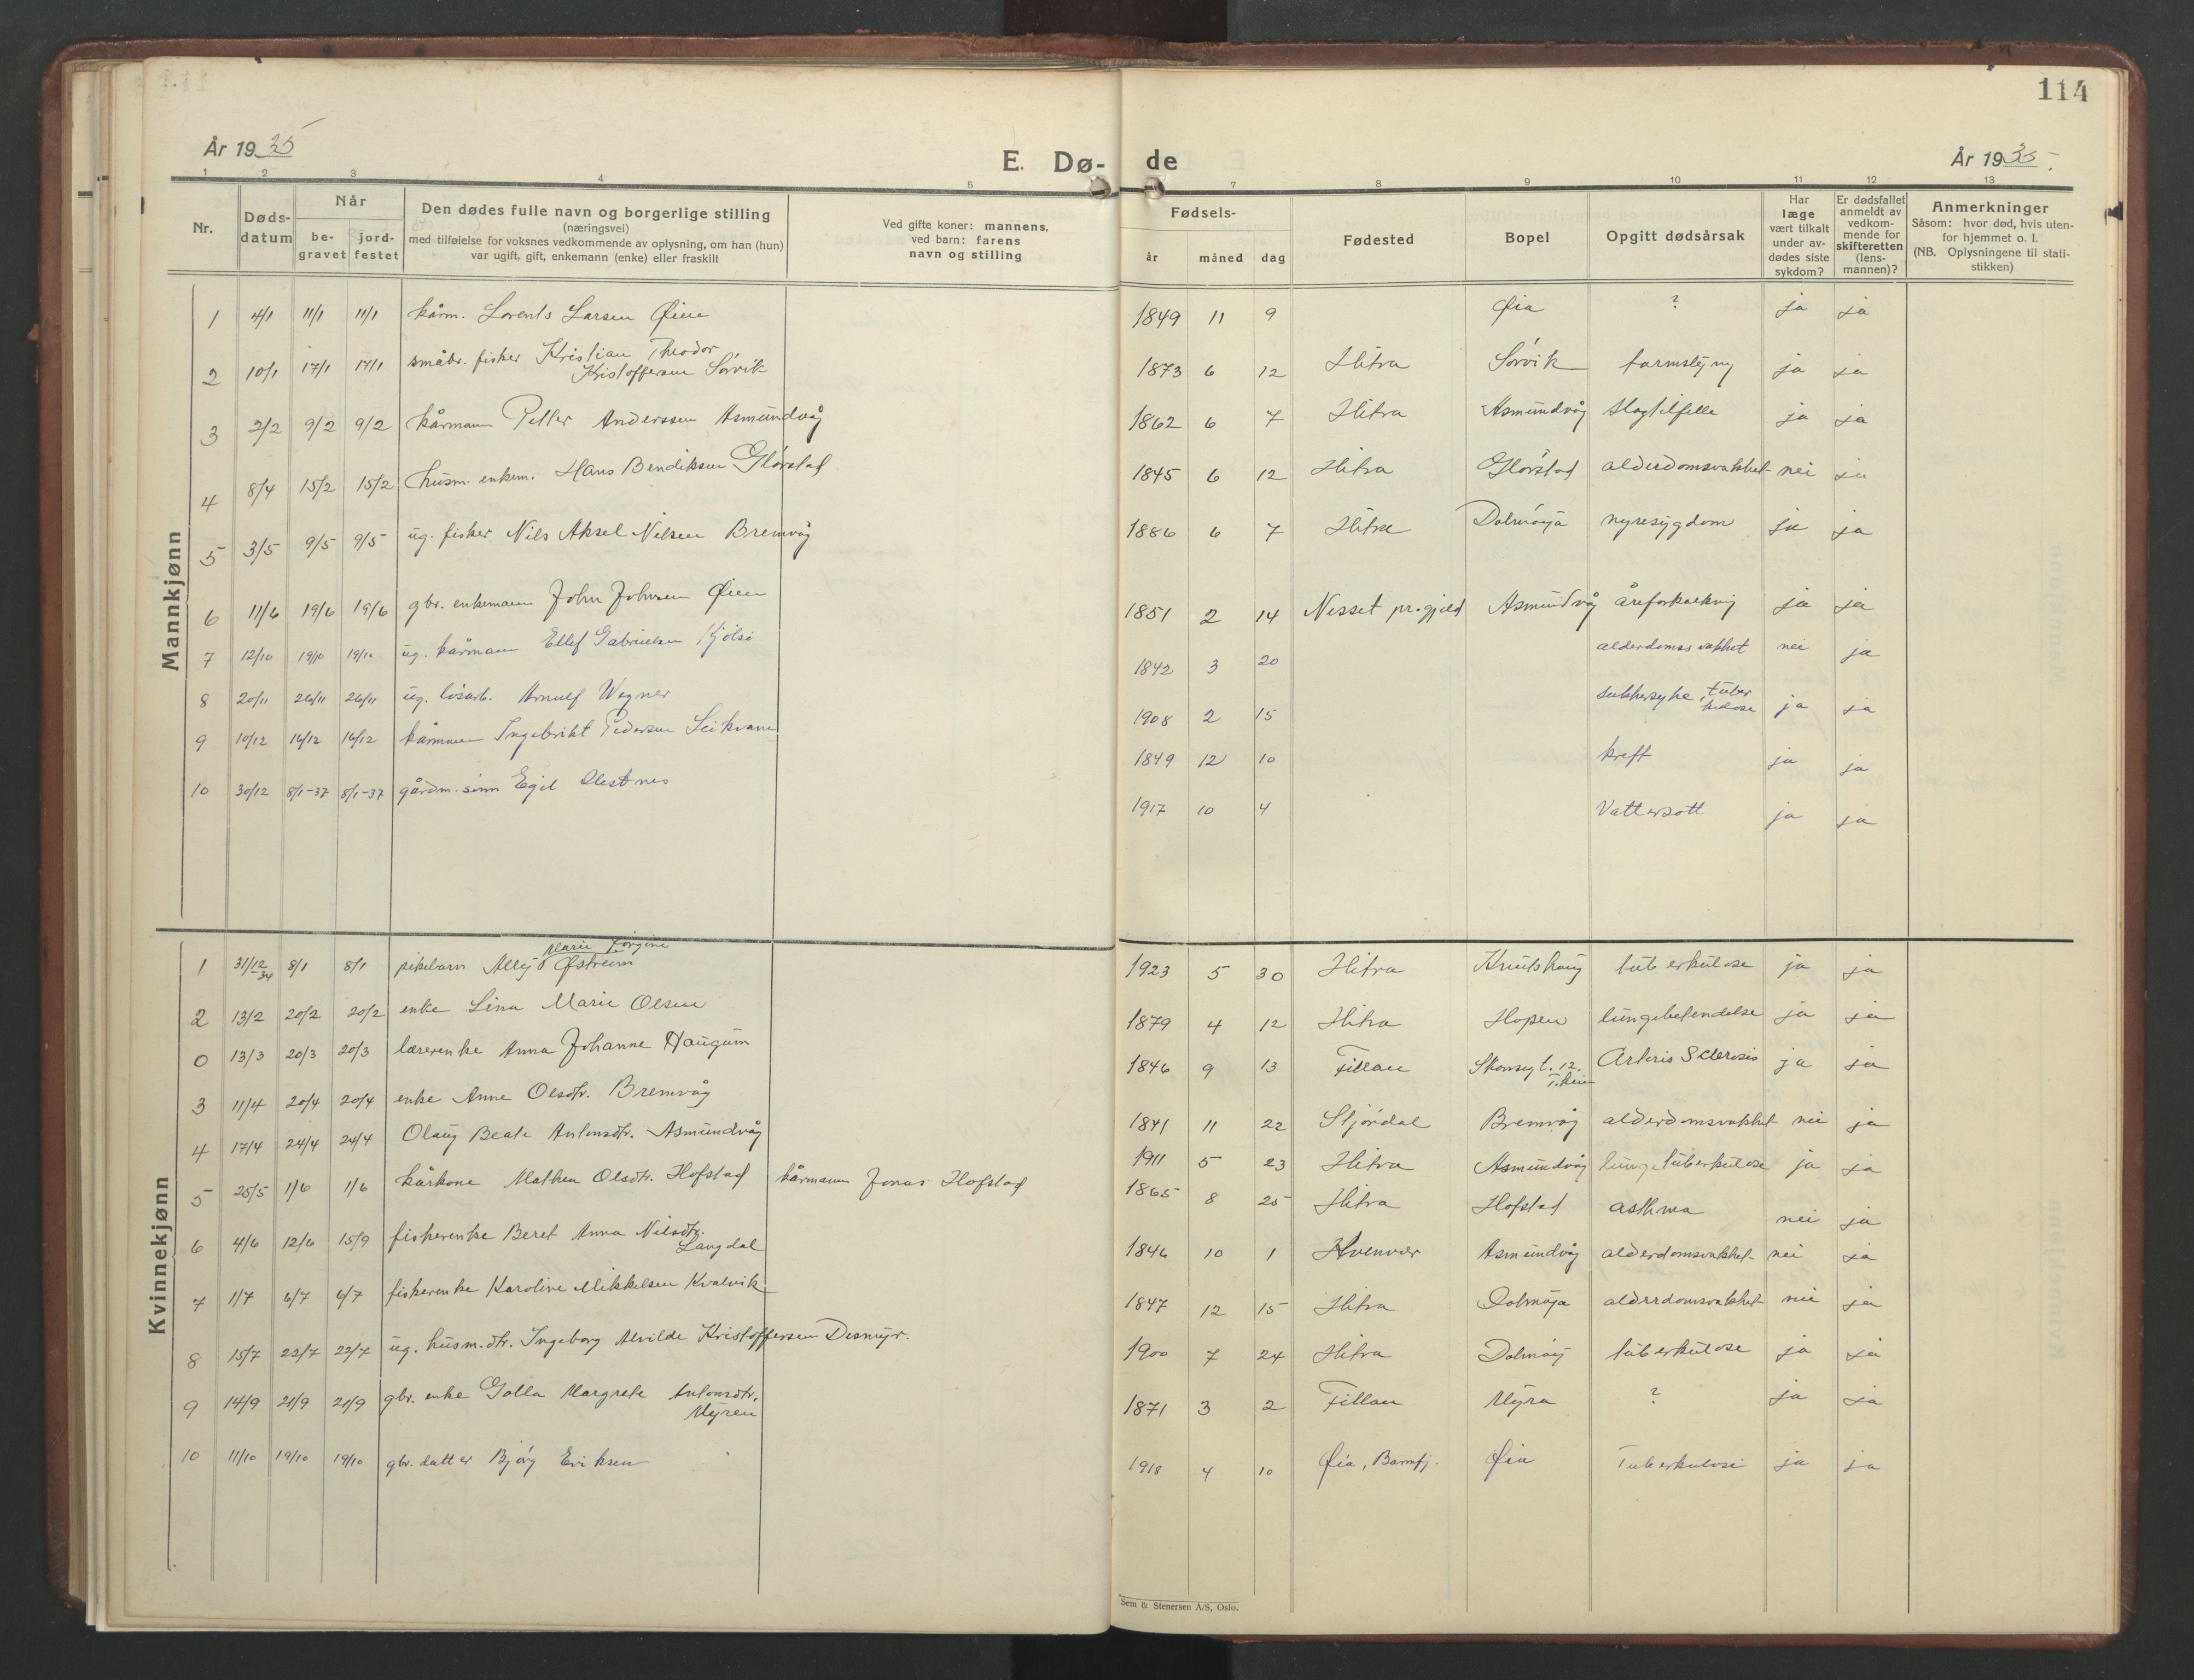 114
År 1935
E. Dø-
de
År 1935
1 2 3 4 5 7 8 9 10 11 12 13
Nr.
Døds-
datum
Når
be-
gravet
jord-
festet
Den dødes fulle navn og borgerlige stilling
(næringsvei)
med tilføielse for voksnes vedkommende av oplysning, om han (hun)
var ugift, gift, enkemann (enke) eller fraskilt
Ved gifte koner: mannens,
ved barn: farens
navn og stilling
Fødsels-
år måned dag
Fødested
Bopel
Opgitt dødsårsak
Har
læge
vært tilkalt
under av-
dødes siste
sykdom?
Er dødsfallet
anmeldt av
vedkom-
mende for
skifteretten
(lens-
mannen)?
Anmerkninger
Såsom: hvor død, hvis uten-
for hjemmet o. l.
(NB. Oplysningene til stati-
stikken)
Mannkjønn
1 4/1 11/1 11/1 kårm. Lorents Larsen Øien 1849 11 9 Øia ? ja ja
2 10/1 17/1 17/1 småbr. fisker Kristian Theodor
Kristoffersen Sørvik 1873 6 12 Hitra Sørvik tarmslyng ja ja
3 2/2 9/2 9/2 kårmann Petter Anderssen Asmundvåg 1862 6 7 Hitra Asmundvåg slagtilfelle ja ja
4 8/4 15/2 15/2 husm. enkem. Hans Bendiksen Glørstad 1845 6 12 Hitra Glørstad alderdomsvakhet nei ja
5 3/5 9/5 9/5 ug. fisker Nils Aksel Nilsen Bremvåg 1886 6 7 Hitra Dolmøya nyresygdom ja ja
6 11/6 19/6 19/6 gbr. enkemann John Johnsen Øien 1851 2 14 Nesset pr.gjeld Asmundvåg åreforkalkning ja ja
7 12/10 19/10 19/10 ug. kårmann Ellef Gabrielsen Kjølsø 1842 3 20 alderdomssvakhet nei ja
8 20/11 26/11 26/11 ug. løsarb. Arnulf Wegner 1908 2 15 sukkersyke, tuber
kulose ja ja
9 10/12 16/12 16/12 kårmann Ingebrikt Pedersen Leikvam 1849 12 10 kreft ja ja
10 30/12 8/1-37 8/1-37 gårdm. sønn Egil Olestnes 1917 10 4 Vattersott ja ja
Kvinnekjønn
Marie Jorgine
1 31/12-34 8/1 8/1 pikebarn Østreim 1923 5 30 Hitra Knutshaug tuberkulose ja ja
2 13/2 20/2 20/2 enke Lina Marie Olsen 1879 4 12 Hitra Hopen lungebetendelse ja ja
0 13/3 20/3 20/3 lærerenke Anna Johanne Haugum 1846 9 13 Fillan Skonseyt. 12. Arteris Sclerosis ja ja
3 11/4 20/4 20/4 enke Anne Olsdtr. Bremvåg 1841 11 22 Stjørdal Bremvåg alderdomsvakhet nei ja
4 17/4 24/4 24/4 Olaug Beate Antonsdtr. Asmundvåg 1911 5 23 Hitra Asmundvåg lungetuberkulose ja ja
5 25/5 1/6 1/6 kårkone Mathea Olsdtr. Hofstad kårmann Jonas Hofstad 1865 8 25 Hitra Hofstad asthma nei ja
6 4/6 12/6 15/9 fiskerenke Beret Anna Nilsdtr.
Langdal 1846 10 1 Kvenvær Asmundvåg alderdomsvakhet nei ja
7 1/7 6/7 6/7 fiskerenke Karoline Mikkelsen Kvalvik 1847 12 15 Hitra Dolmøya alderdomsvakhet nei ja
8 15/7 22/7 22/7 ug. husm.dtr. Ingeborg Alvilde Kristoffersen Desmyr. 1900 7 24 Hitra Dolmøy tuberkulose ja ja
9 14/9 21/9 21/9 gbr. enke Golla Margrete Antonsdtr.
Myren 1871 3 2 Fillan Myra ? ja ja
10 11/10 19/10 19/10 gbr. datter Bjørg Eriksen 1918 4 10 Øia, Barmfj. Øia Tuberkulose ja ja
Sem & Stenersen A/S, Oslo.